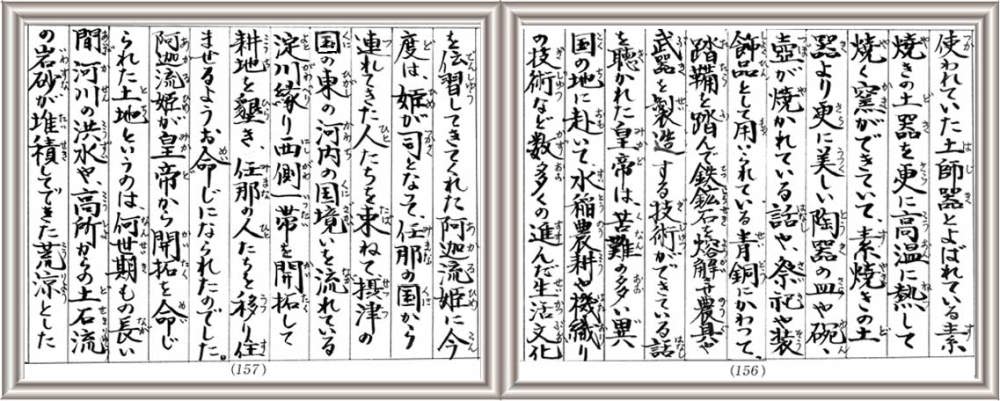 使われていた土師器とよばれている素
焼きの土器を更に高温に熱して
焼く窯ができていて、素焼きの土
器より更に美しい陶器の皿や碗、
壺が焼かれている話や、祭祀や装
飾品として用いられている青銅にかわって、
踏鞴を踏んで鉄鉱石を熔解 農具や
武器を製造する技術ができている話
を聴かれた皇帝は、苦難の多い異
国の地に赴いて、水稲農耕や機織り
の技術など数多くの進んだ生活文化
(156)
を伝習してきてくれた阿迦流姫に今
度は、姫が司となって、任那の国から
連れてきた人たちを束ねて、摂津の
国の東の河内の国境いを流れている
淀川縁り西側一帯を開拓して
耕地を墾き、任那の人たちを移り住
ませるようお命じになられたのでした。
阿迦流姫が皇帝から開拓を命じ
られた土地というのは、何世期もの長い
間、河川の洪水や高所からの土石流
の岩砂が堆積してできた荒涼とした
(157)